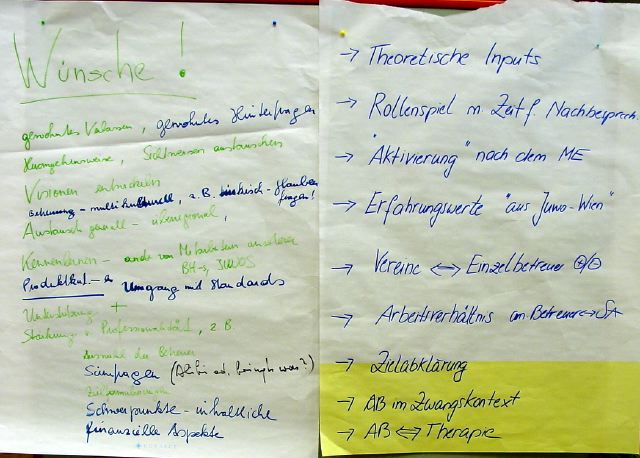 Wünsche!
gewohntes Verlassen, gewohntes Hinterfragen
Herangehensweise, Sichtweisen austauschen
Visionen entwickeln
Betreuung - multikulturell, z.B. - Glaubens
fragen!
Austausch generell - überregional,
Kennenlernen - andr. von Mitarbeitern anderer
BH-s, JUWOS
Produktkat. - Umgang mit Standards
Unterstützung +
Stärkung v. Professionalität, z.B.
Auswahl der Betreuer
Sinnfragen
Zielformulierung
Schwerpunkte - inhaltliche
finanzielle Aspekte
→ Theoretische Inputs
→ Rollenspiel m. Zeit f. Nachbesprech.
→ "Aktivierung" nach dem ME
→ Erfahrungswerte "aus Juwo-Wien"
→ Vereine ⟺ Einzelbetreuer ⊕/⊖
→ Arbeitsverhältnis von Betreuer ⟺ SA
→ Zielabklärung
→ AB im Zwangskontext
→ AB ⟺ Therapie